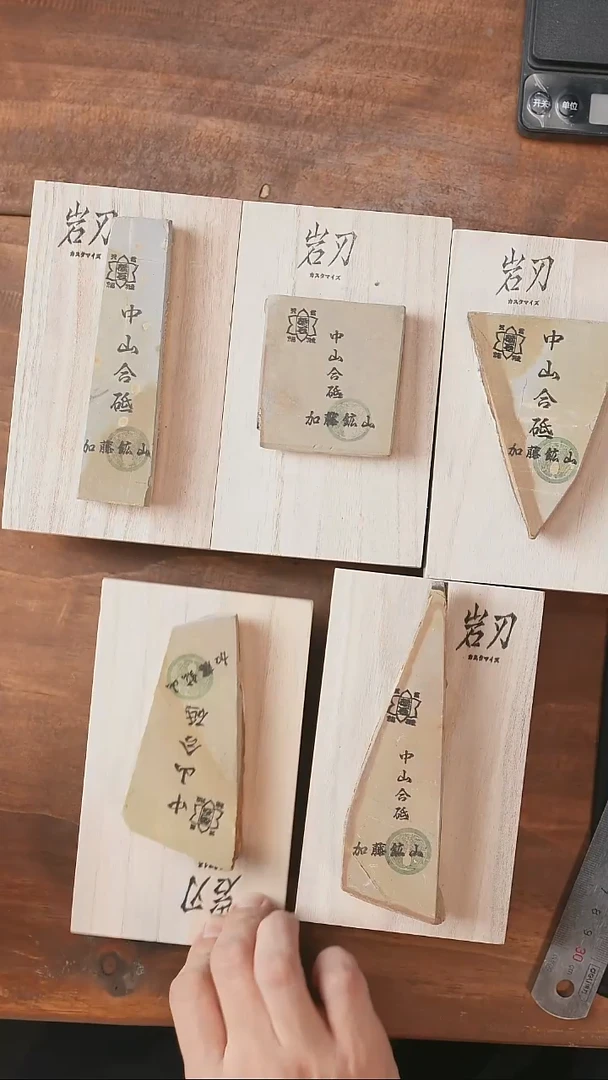 开关
单位
岩刃
カスタマイズ
中山合砥
加藤鉱山
岩刃
カスタマイズ
中山合砥
加藤鉱山
岩刃
カスタマイズ
中山合砥
加藤鉱山
中山合砥
加藤鉱山
岩刃
岩刃
カスタマイズ
中山合砥
加藤鉱山
30
9
8